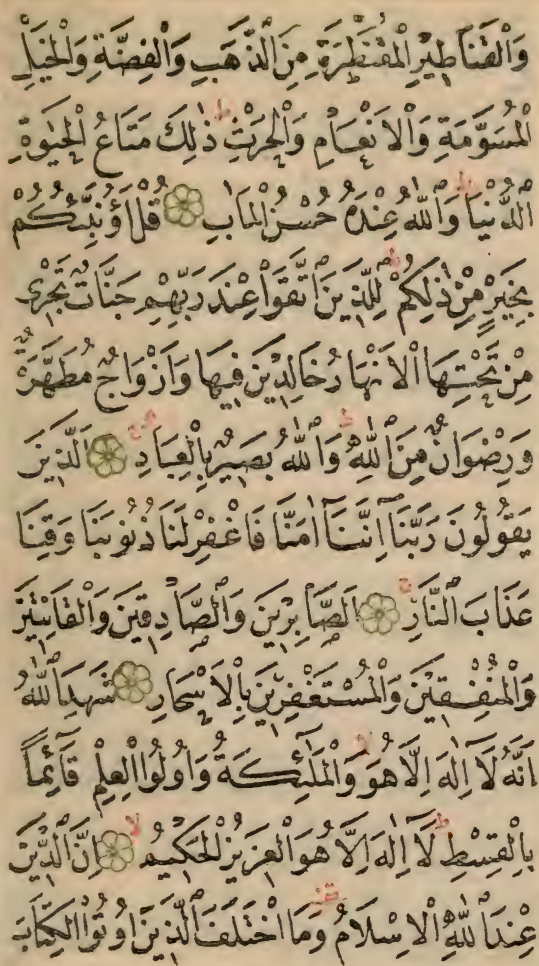 وَالْقَنَاطِيرِ الْمُقَنْطَرَةِ مِنَ الذَّهَبِ وَالْفِضَّةِ وَالْخَيْلِ
الْمُسَوَّمَةِ وَالْاَنْعَامِ وَالْحَرْثِ ط ذٰلِكَ مَتَاعُ الْحَيٰوةِ
الدُّنْيَا ط وَاللّٰهُ عِنْدَهُ حُسْنُ الْمَاٰبِ ۝ قُلْ اَؤُنَبِّئُكُمْ
بِخَيْرٍ مِنْ ذٰلِكُمْ ط لِلَّذِينَ اتَّقَوْا عِنْدَ رَبِّهِمْ جَنَّاتٌ تَجْرِى
مِنْ تَحْتِهَا الْاَنْهَارُ خَالِدِينَ فِيهَا وَاَزْوَاجٌ مُطَهَّرَةٌ
وَرِضْوَانٌ مِنَ اللّٰهِ ط وَاللّٰهُ بَصِيرٌ بِالْعِبَادِ ۝ اَلَّذِينَ
يَقُولُونَ رَبَّنَا اِنَّنَا اٰمَنَّا فَاغْفِرْ لَنَا ذُنُوبَنَا وَقِنَا
عَذَابَ النَّارِ ۝ اَلصَّابِرِينَ وَالصَّادِقِينَ وَالْقَانِتِينَ
وَالْمُنْفِقِينَ وَالْمُسْتَغْفِرِينَ بِالْاَسْحَارِ ۝ شَهِدَ اللّٰهُ
اَنَّهُ لَا اِلٰهَ اِلَّا هُوَ وَالْمَلٰٓئِكَةُ وَاُولُوا الْعِلْمِ قَآئِماً
بِالْقِسْطِ ط لَا اِلٰهَ اِلَّا هُوَ الْعَزِيزُ الْحَكِيمُ لا ۝ اِنَّ الدِّينَ
عِنْدَ اللّٰهِ الْاِسْلَامُ وَمَا اخْتَلَفَ الَّذِينَ اُوتُوا الْكِتَابَ